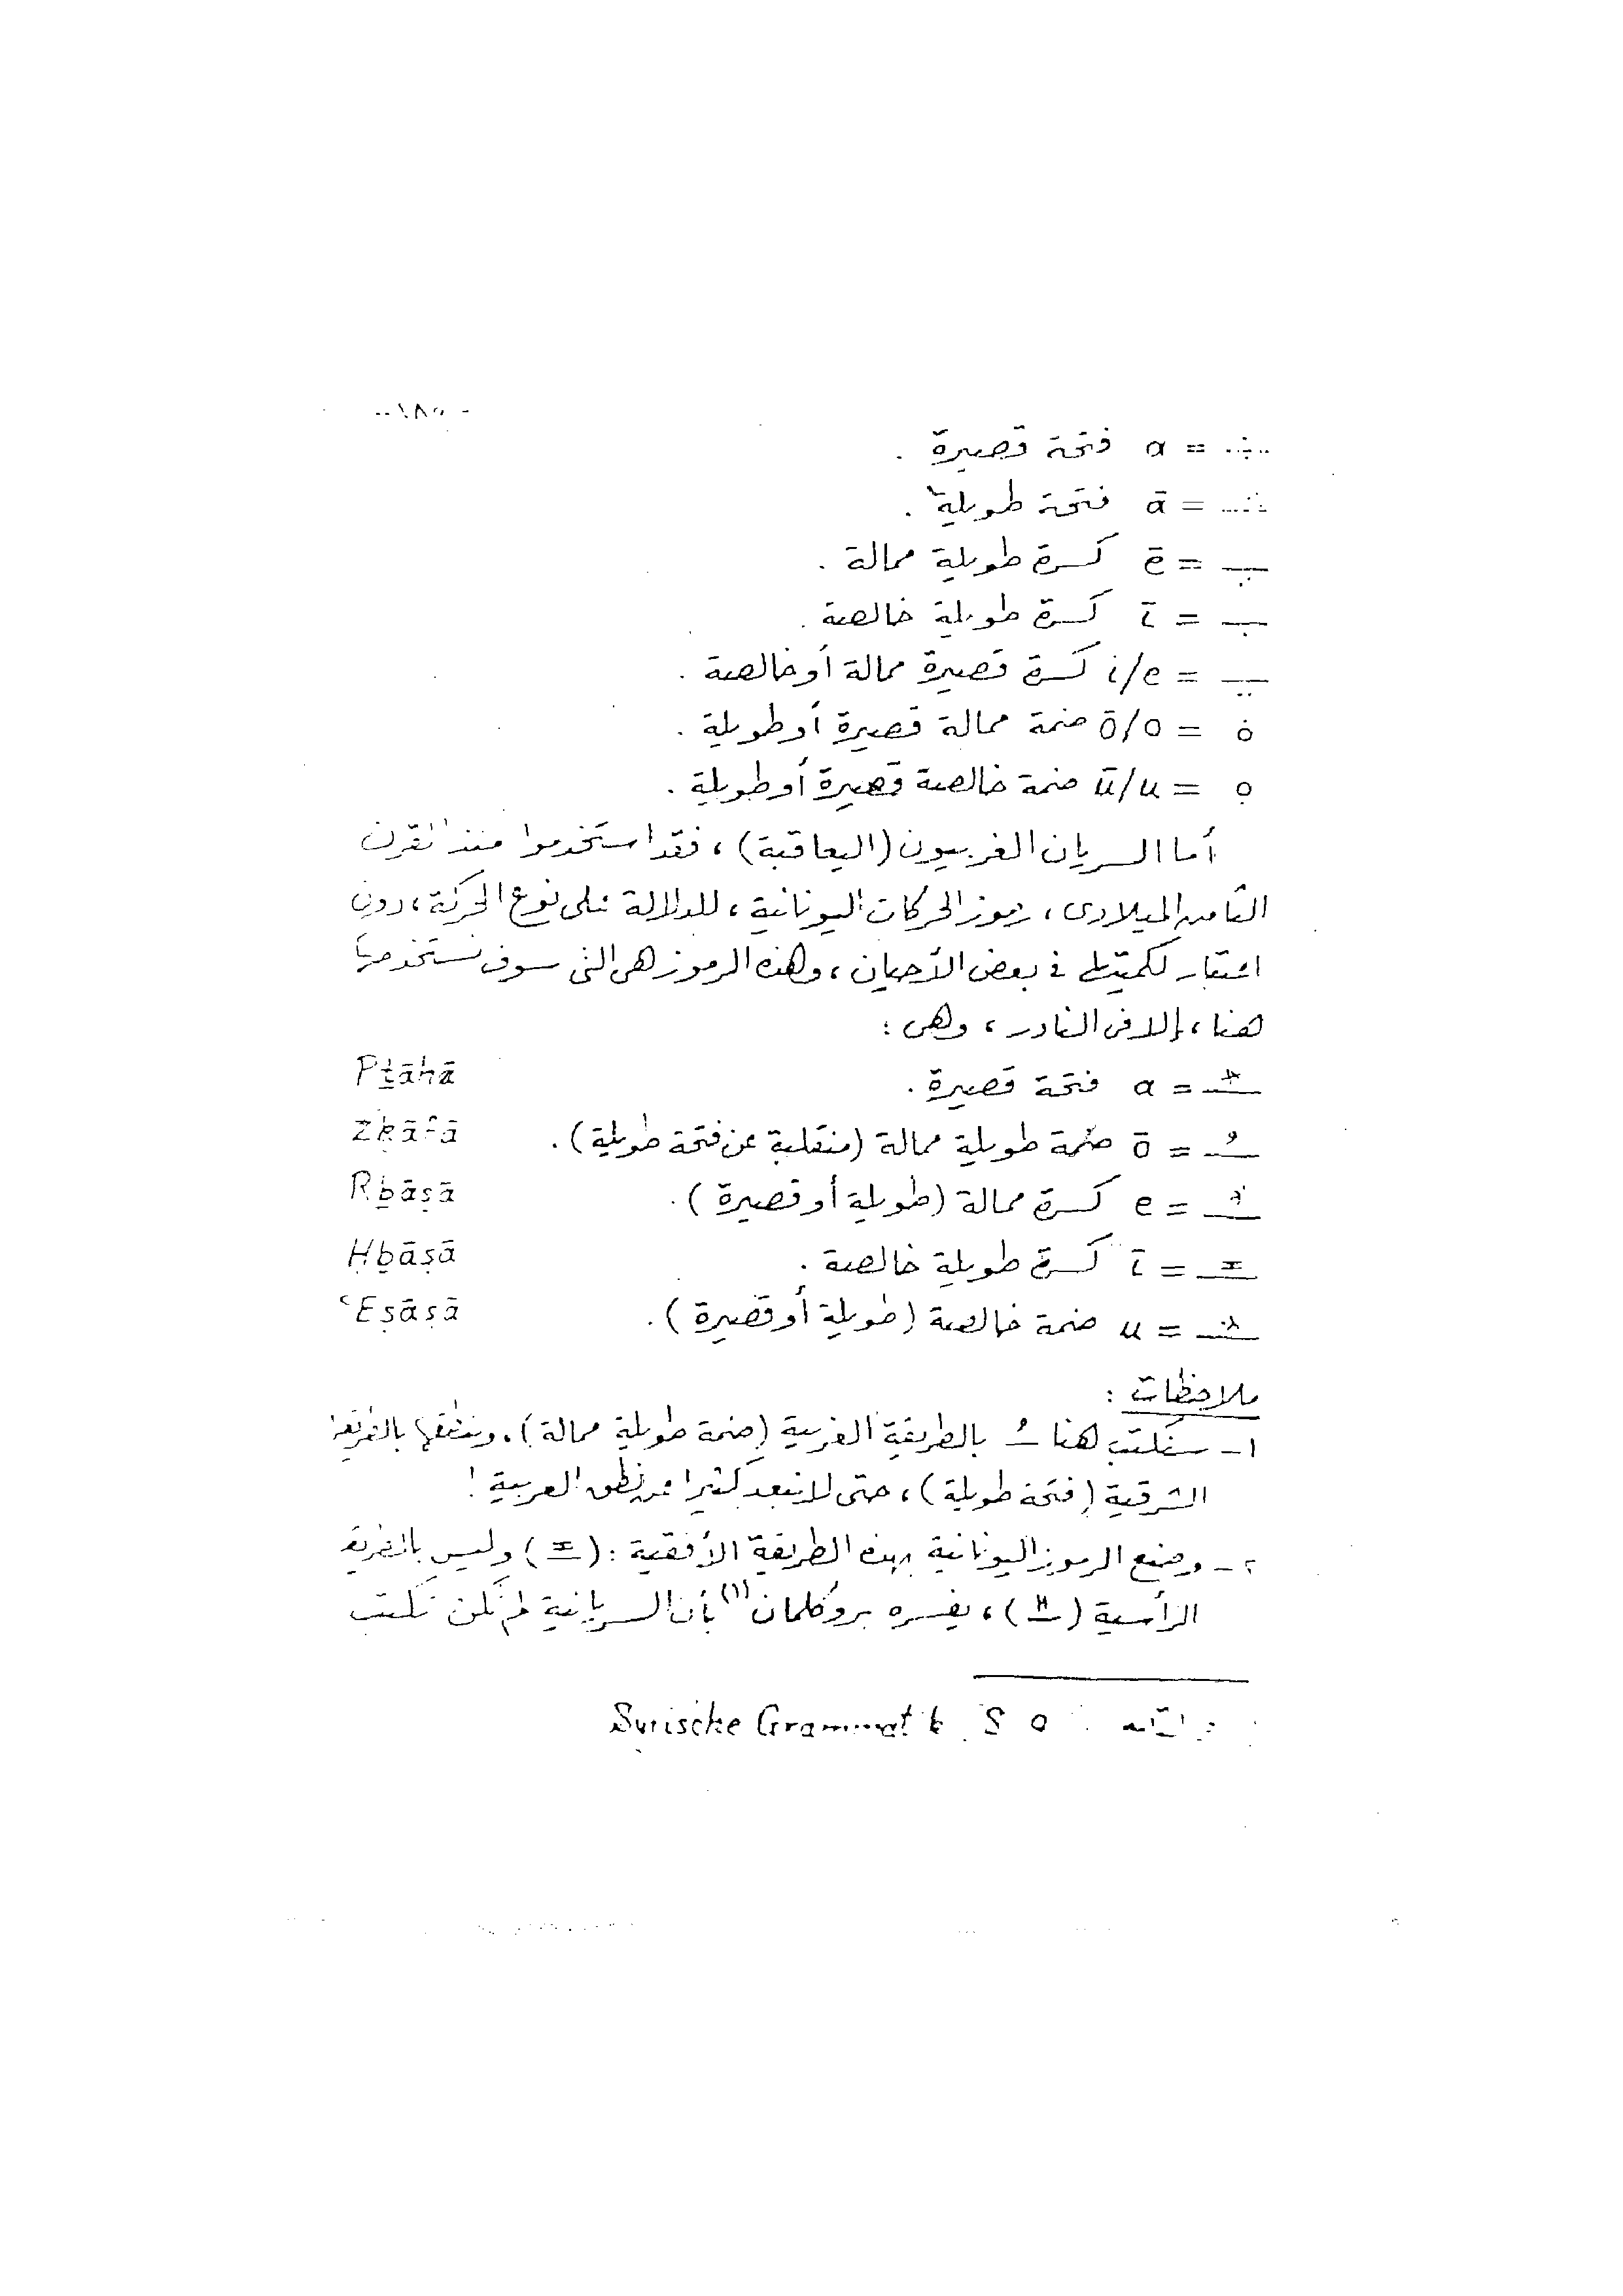 - ١٨٥ -
ـَـ = a فتحة قصيرة .
= ā فتحة طويلة .
= ē كسرة طويلة ممالة .
= ī كسرة طويلة خالصة .
= i/e كسرة قصيرة ممالة أو خالصة .
ܘ = ō/o ضمة ممالة قصيرة أو طويلة .
ܘ = ū/u ضمة خالصة قصيرة أو طويلة .
أما السريان الغربيون (اليعاقبة) ، فقد استخدموا منذ القرن
الثامن الميلادى ، رموز الحركات اليونانية ، للدلالة على نوع الحركة ، دون
اعتبار لكميتها فى بعض الأحيان ، وهذه الرموز هى التى سوف نستخدمها
هنا ، إلا فى النادر ، وهى :
= a فتحة قصيرة . Pṯāḥā
= ō ضمة طويلة ممالة (منقلبة عن فتحة طويلة) . Zḳāfā
= e كسرة ممالة (طويلة أو قصيرة) . Rḇāṣā
= ī كسرة طويلة خالصة . Ḥḇāṣā
= u ضمة خالصة (طويلة أو قصيرة) . ʿEṣāṣā
ملاحظات :
١ - سنكتب هنا ـُ بالطريقة الغربية (ضمة طويلة ممالة) ، وننطقها بالطريقة
الشرقية (فتحة طويلة) ، حتى لا نبعد كثيرا عن نطق العربية !
٢ - وضع الرموز اليونانية بهذه الطريقة الأفقية : ( ) وليس بالطريقة
الرأسية ( ) ، يفسره بروكلمان (١) بأن السريانية لم تكن تكتب
Syrische Grammatik S